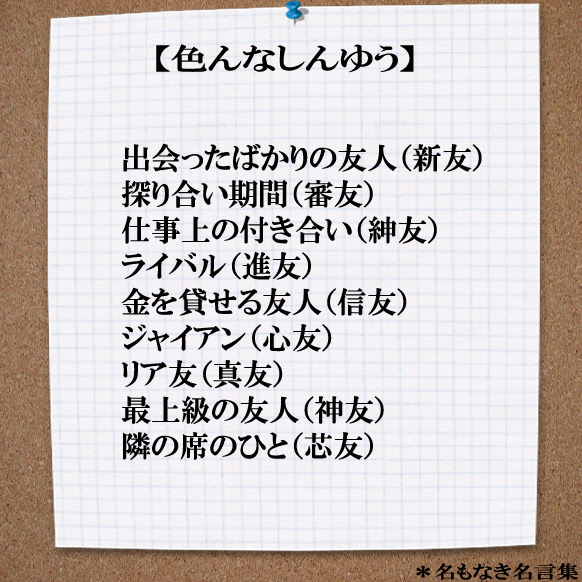 【色んなしんゆう】
出会ったばかりの友人（新友）
探り合い期間（審友）
仕事上の付き合い（紳友）
ライバル（進友）
金を貸せる友人（信友）
ジャイアン（心友）
リア友（真友）
最上級の友人（神友）
隣の席のひと（芯友）
＊名もなき名言集